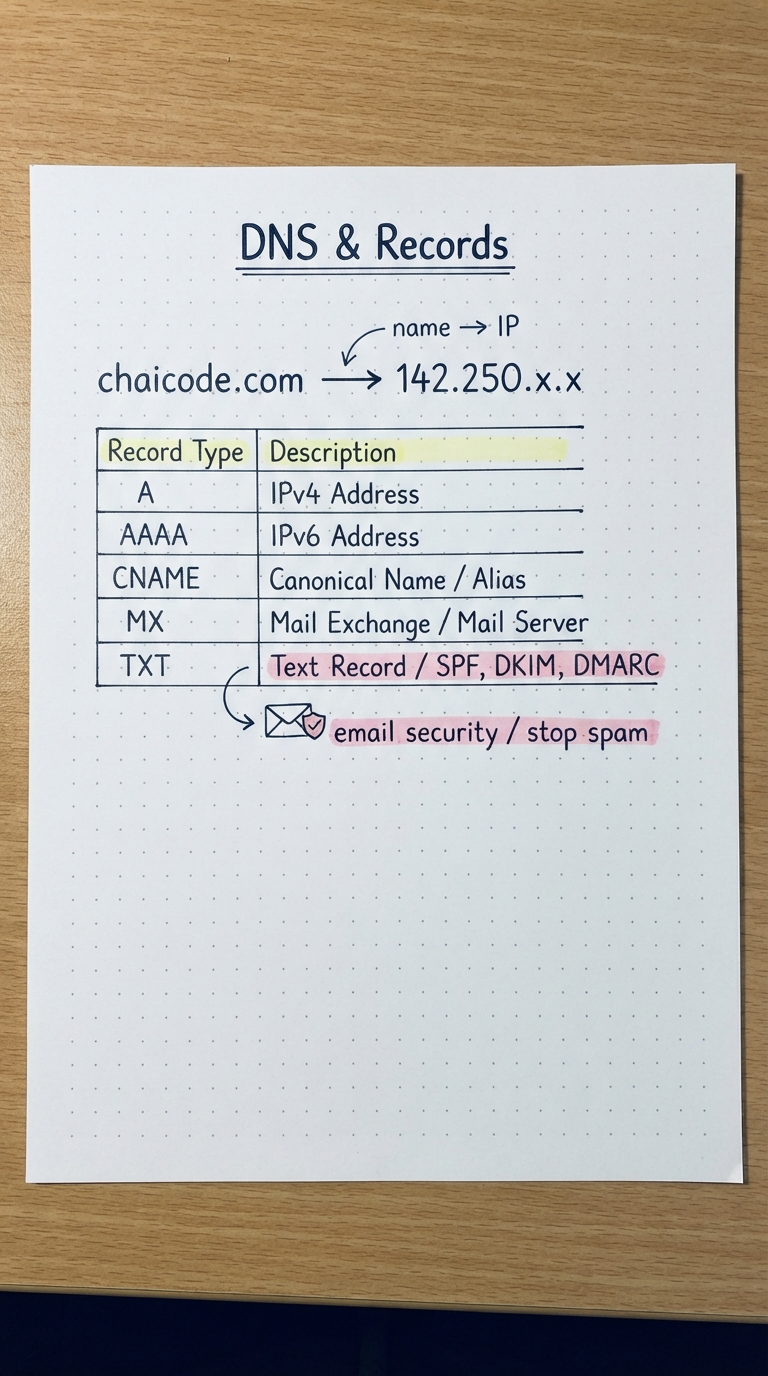 DNS & Records
name → IP
chaicode.com → 142.250.x.x
Record Type Description
A IPv4 Address
AAAA IPv6 Address
CNAME Canonical Name / Alias
MX Mail Exchange / Mail Server
TXT Text Record / SPF, DKIM, DMARC
email security / stop spam